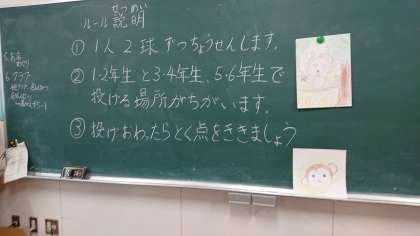 せつめい
ルール説明
① 1人2球ずつちょうせんします。
② 1・2年生と3・4年生、5・6年生で
投げる場所がちがいます。
③ 投げおわったらとく点をききましょう